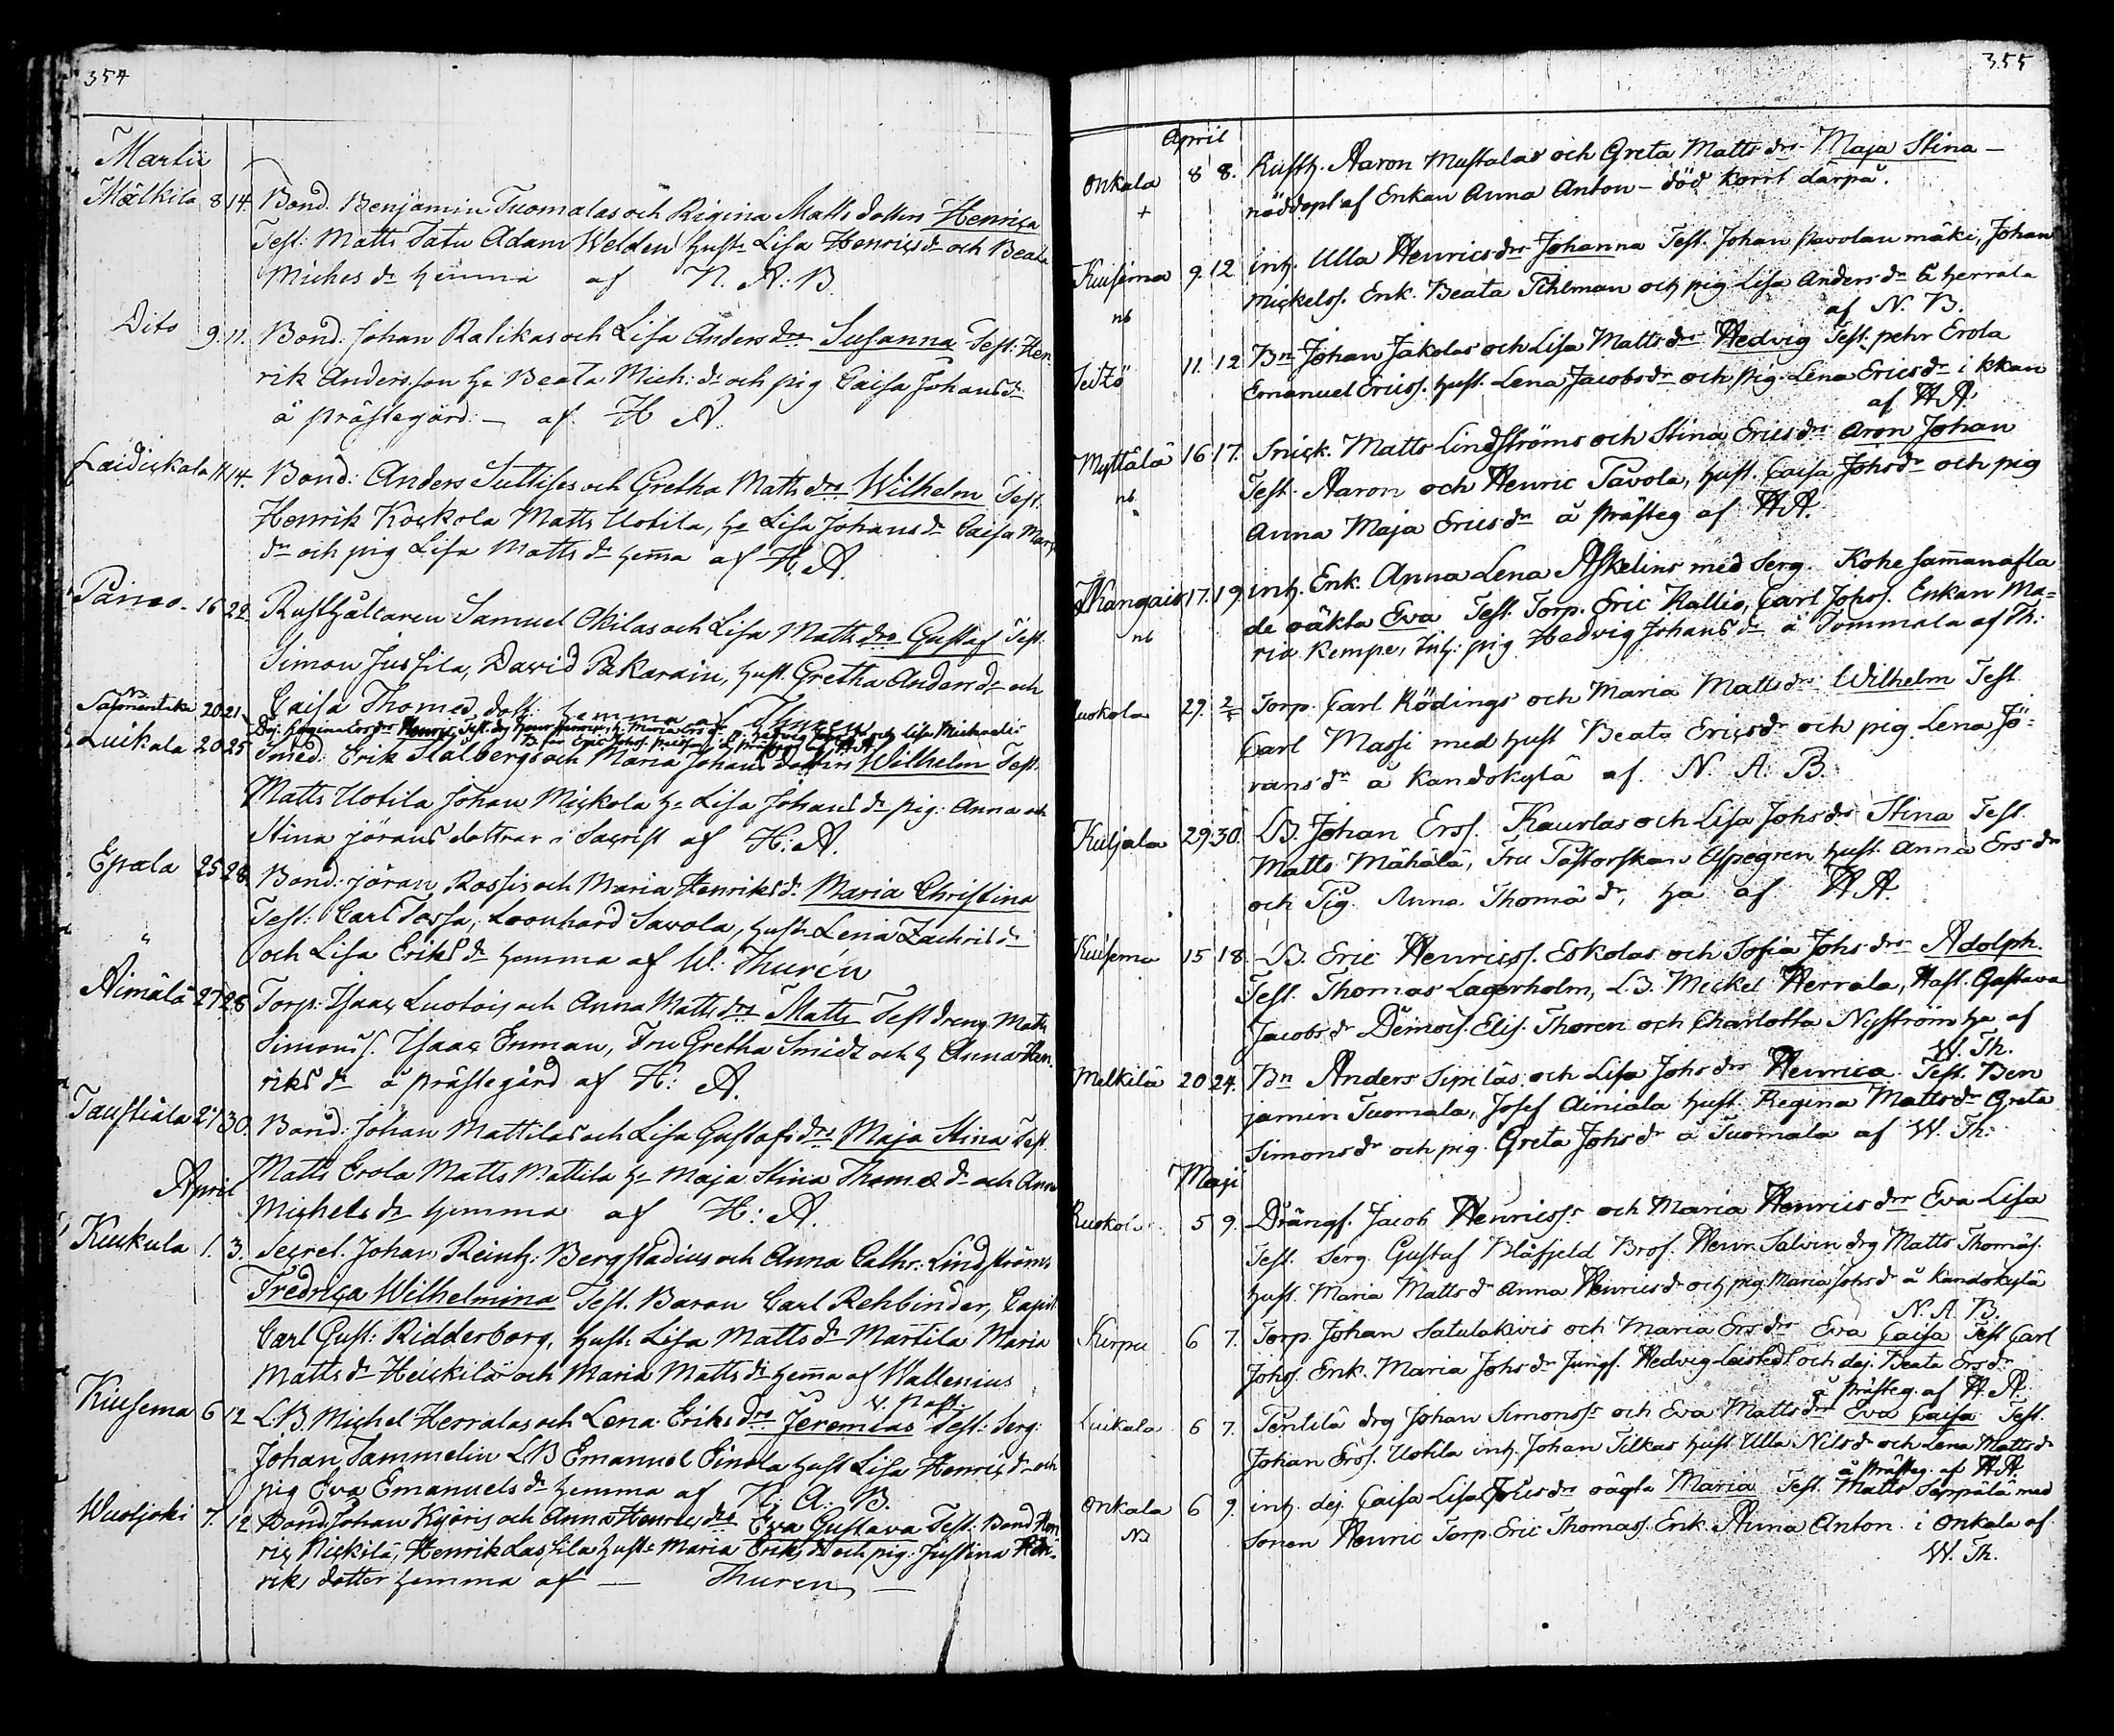 354
Martii
Mälkila 8 14. Bond. Benjamin Tuomalas och Rigina Matts dotters Henrica
Test: Matts Tatu Adam Welden hust: Lisa Henrics dr och Beata
Michels dr hemma af N. A. B.
Dito 9. 11. Bond. Johan Ralikas och Lisa Anders drs Susanna Test: Hen
rik Andersson h: Beata Mich: dr och pig Caisa Johans dr
å prästegård. — af H A.
Laidickala 11 14. Bond: Anders Suttises och Gretha Matts drs Wilhelm Test.
Henrik Kockola Matts Uotila, h: Lisa Johans dr Caisa
dr och pig Lisa Matts dr hema af H. A.
Panso 16 22. Rusthållaren Samuel Okilas och Lisa Matts drs Gustaf Test.
Simon Jussila, David Pakarain, hust. Gretha Anders dr och
Caisa Thomæ dott: hemma af Thuren
NB
20 21 Dej. Regina Ers drs Henric Test.
Luikala 20 25 Smed: Erik Stålbergs och Maria Johans dotters Wilhelm Test.
Matts Uotila Johan Mickola h: Lisa Johans dr pig: Anna och
Stina jörans dottrar i Sacrist af H: A.
Epala 25 28. Bond: jöran Rossis och Maria Henriks dr Maria Christina
Test: Carl Tossa, Leonhard Savola, hust: Lena Zachris dr
och Lisa Eriks dr hemma af W. Thurén
Äimälä 27 28 Torp: Isaac Luotois och Anna Matts drs Matts Test dreng Matts
Simons s. Isaac Enman, Fru Gretha Smidt och h Anna Hen
riks dr å prästegård af H: A.
Taustiala 27 30. Bond: Johan Mattilas och Lisa Gustafs drs Maja Stina Test.
Matts Erola Matts Mattila h: Maja Stina Thomæ dr och Anna
Michels dr hemma af H: A.
April
Kuckula 1. 3. Secret. Johan Reinh: Bergstadius och Anna Cathr: Lindströms
Fredrica Wilhelmina Test. Baron Carl Rehbinder, Capit
Carl Gust: Ridderborg, hust: Lisa Matts dr Märtila Maria
Matts dr Heickilä och Maria Matts dr hema af Wallenius
V. Past.
Kiusema 6 12 L.B. Michel Herralas och Lena Eriks drs Jeremias Test: Serg:
Johan Tammelin LB Emanuel Einola hust Lisa Henrics dr och
pig Eva Emanuels dr hemma af N: A: B.
Wuotjoki 7. 12 Bond. Johan Kyöris och Anna Henrics drs Eva Gustava Test: Bond Hen
ric Nickilä, Henrik Lassila hust: Maria Eriks dr och pig: Justina Hen
riks dotter hemma af — Thuren —
355
April
Onkala 8 8. Rusth. Aaron Mustalas och Greta Matts drs Maja Stina —
+ nöddopt af Enkan Anna Anton — död kort därpå.
Kuisema 9. 12 inh. Ulla Henrics drs Johanna Test. Johan Pavolan mäki, Johan
nb Mickelss. Enk. Beata Tihlman och pig Lisa Anders dr å herrala
af N. B.
Teitö 11. 12 Bn Johan Jakolas och Lisa Matts drs Hedvig Test. pehr Erola
Emanuel Ericss. hust. Lena Jacobs dr och pig. Lena Erics dr i kkan
af HA.
Myttälä 16 17. Snick. Matts Lindströms och Stina Erics drs Aron Johan
nb Test. Aaron och Henric Tavola, hust. Caisa Johs dr och pig
Anna Maja Erics dr å Prästeg af HA.
Kangais 17. 19. inh. Enk. Anna Lena Askelins med Serg. Kohe samanafla
nb de oäkta Eva Test. Torp. Eric Kallio, Carl Johss. Enkan Ma=
ria Kempe, Inh: pig Hedvig Johans dr å Tommola af Th.
Ruokola 29. 2/5 Torp. Carl Rödings och Maria Matts drs Wilhelm Test.
Carl Massi med hust Beata Erics dr och pig Lena Jö=
rans dr å kandokylä af. N. A. B.
Kuljala 29. 30. LB. Johan Ers s. Kaurlas och Lisa Johs drs Stina Test.
Matts Mähälä, Fru Pastorskan Aspegren hust. Anna Ers dr
och Pig. Anna Thomä dr, ha af HA.
Kuisema 15 18. LB. Eric Henricss. Eskolas och Sofia Johs drs Adolph.
Test. Thomas Lagerholm, LB. Mickel Herrala, Hust. Gustava
Jacobs dr Demois. Elis. Thoren och Charlotta Nyström ha af
W. Th.
Melkilä 20 24. Bn Anders Sipiläs och Lisa Johs drs Henrica. Test. Ben
jamin Tuomala, Josef Ainiala hust. Regina Matts dr Greta
Simons dr och pig Greta Johs dr å Tuomala af W. Th:
Maji
Ruokola 5 9. Drängs. Jacob Henricss: och Maria Henrics drs Eva Lisa
Test. Serg. Gustaf Blåfjeld Bros. Henr. Salvin drg Matts Thomäs.
hust. Maria Matts dr Anna Henrics dr och pig Maria Johs dr å Kandokylä
N. A. B.
Kirpu 6 7. Torp. Johan Satulakivis och Maria Ers drs Eva Caisa Test Carl
Johss. Enk. Maria Johs dr Jungf. Hedvig Leistedt och dej. Beata Ers dr
å Prästeg. af H. A.
Luikala 6 7. Pentilä drg Johan Simonss: och Eva Matts drs Eva Caisa Test.
Johan Erss. Uotila inh. Johan Tilkas hust Ulla Nils dr och Lena Matts dr
å Prästeg. af HA.
Onkala 6 9. inh. dej. Caisa Lisa Erics drs oägta Maria Test. Matts Seppälä med
NB Sonen Henric Torp. Eric Thomass. Enk. Anna Anton. i Onkala af
W. Th.